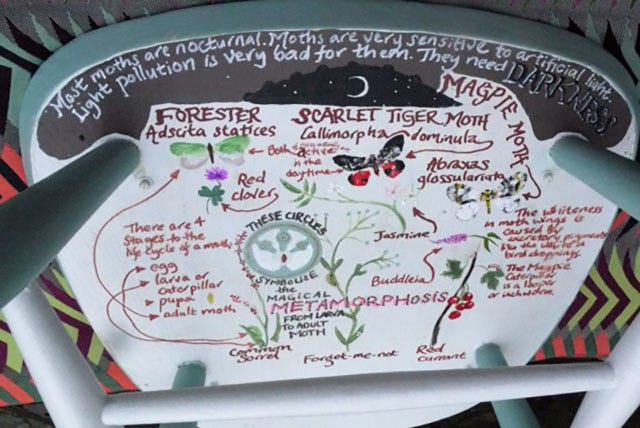 Most moths are nocturnal. Moths are very sensitive to artificial light.
Light pollution is very bad for them. They need DARKNESS
FORESTER
Adscita statices
SCARLET TIGER MOTH
Callimorpha dominula
MAGPIE MOTH
Abraxas
glossulariata
Both
active
in the
daytime
Red
clover
Jasmine
Buddleia
There are 4
stages to the
life cycle of a moth,
egg
larva or
caterpillar
pupa
adult moth
THESE CIRCLES
SYMBOLISE
the
MAGICAL
METAMORPHOSIS
FROM LARVA
TO ADULT
MOTH
The whiteness
in moth wings is
caused by
excretory pigments
like the white in
bird droppings.
The Magpie
Caterpillar
is a looper
or inchworm.
Common
Sorrel
Forget-me-not
Red
currant